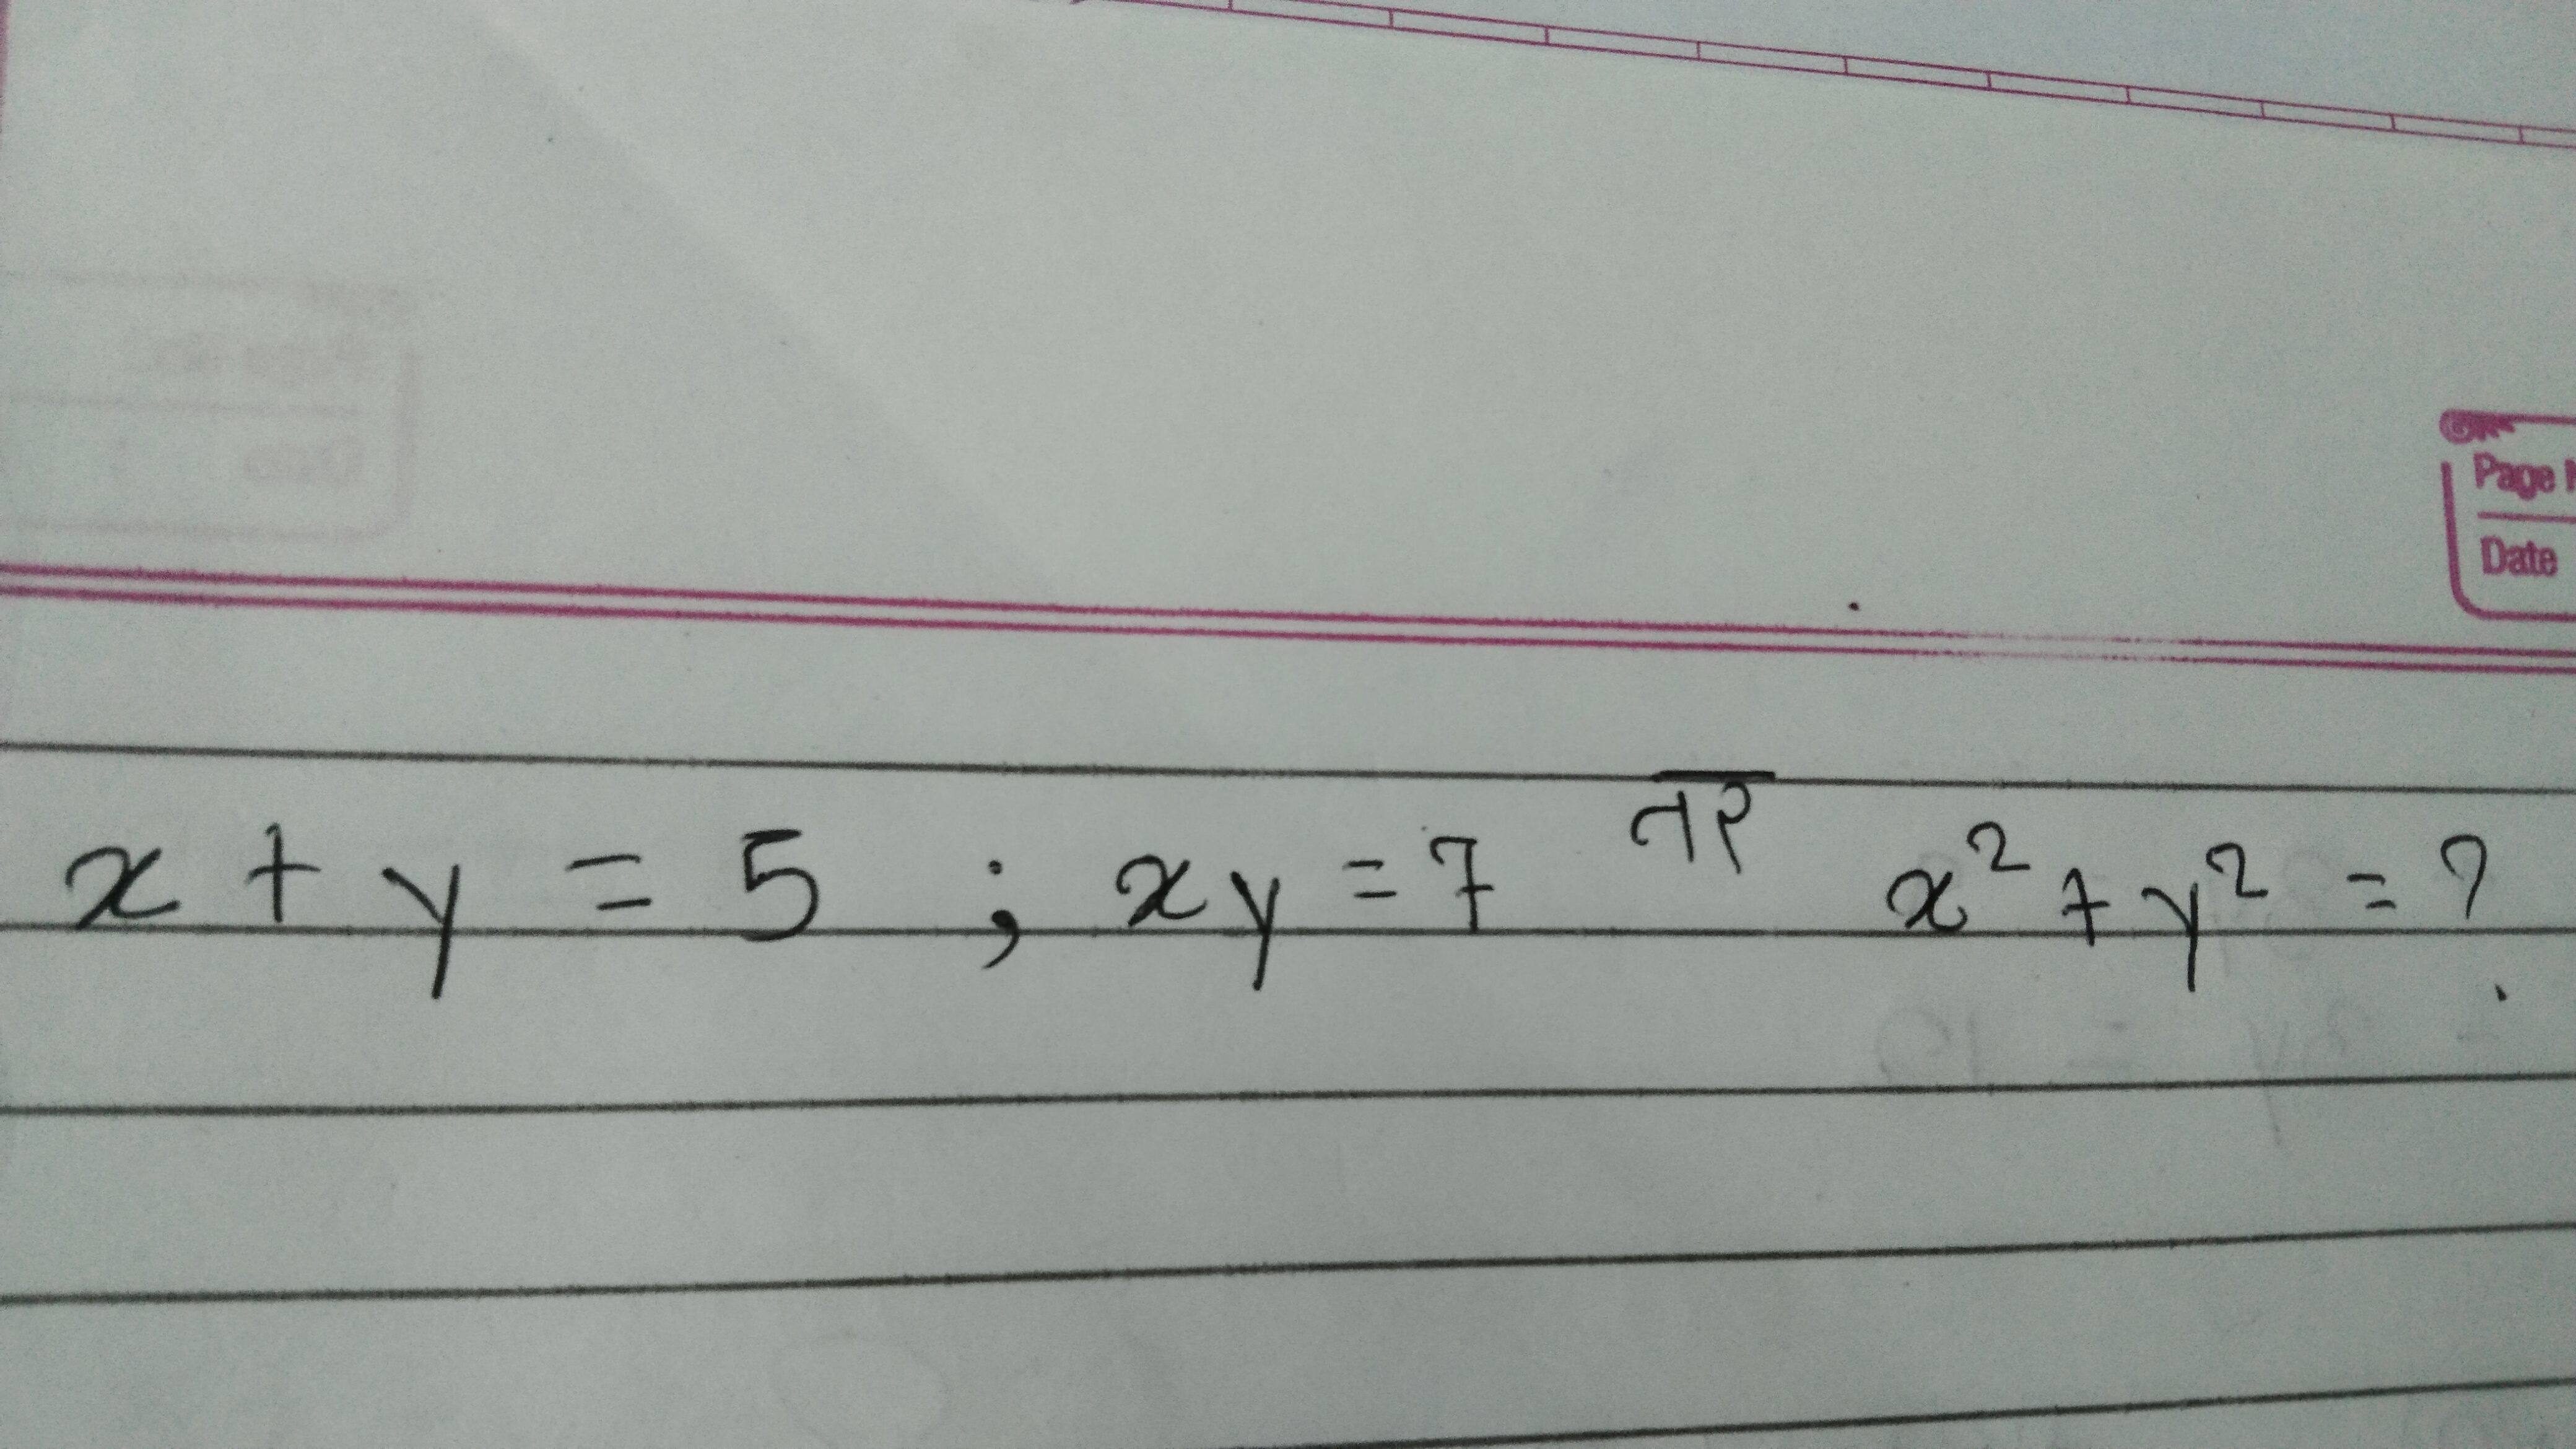 Page
Date
x + y = 5 ; xy = 7 तर x² + y² = ?